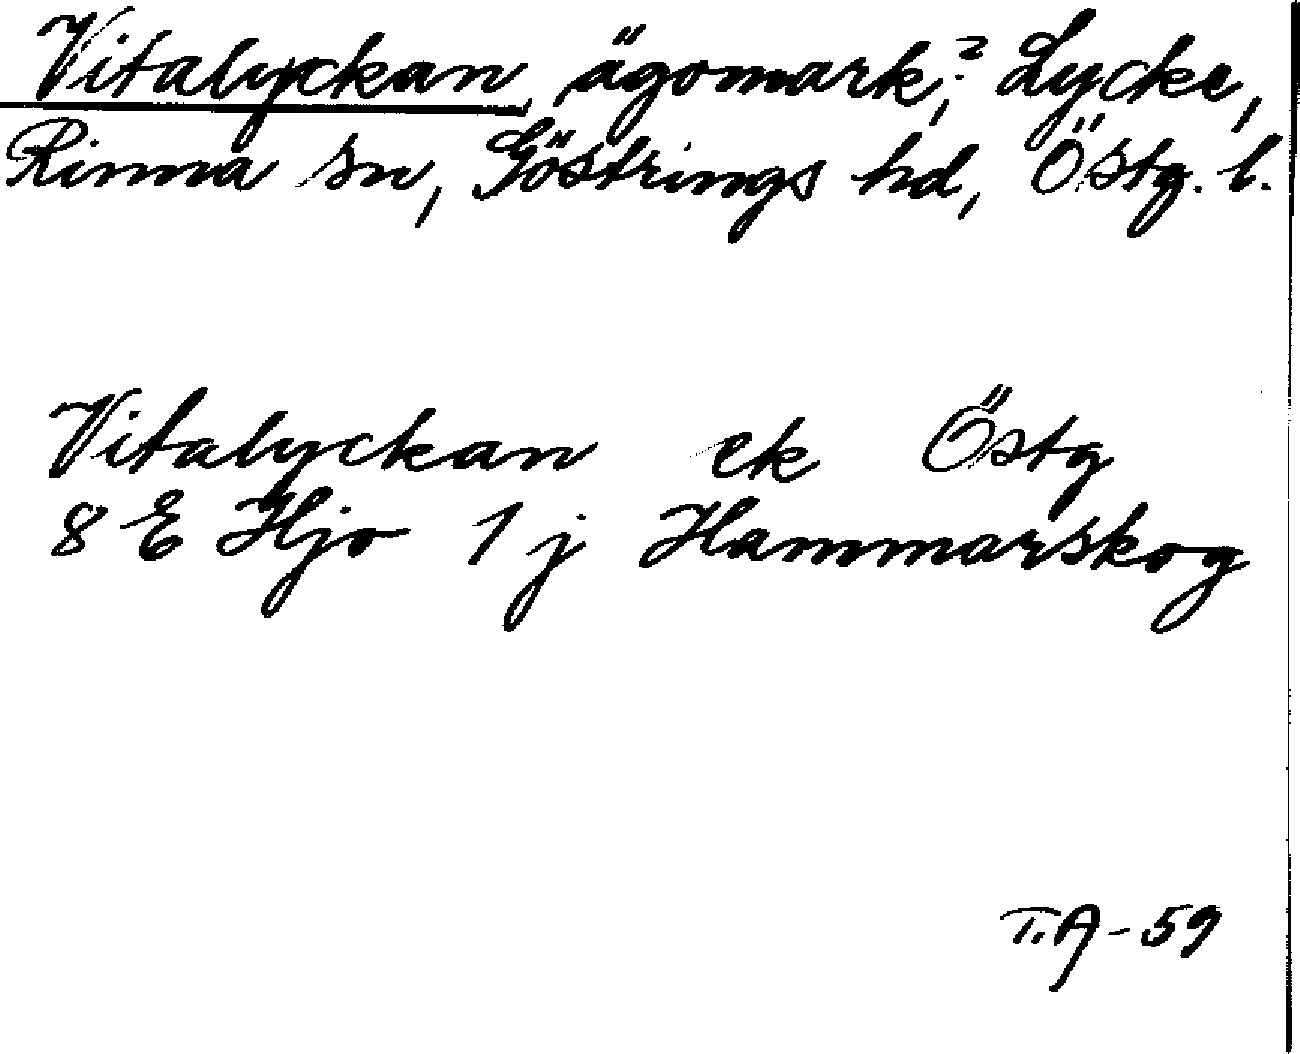 Vitalyckan, ägomark,? Lycke,
Rinna sn, Göstrings hd, Östg. l.
Vitalyckan ek Östg
8 E Hjo 1 j Hammarskog
T.A-59